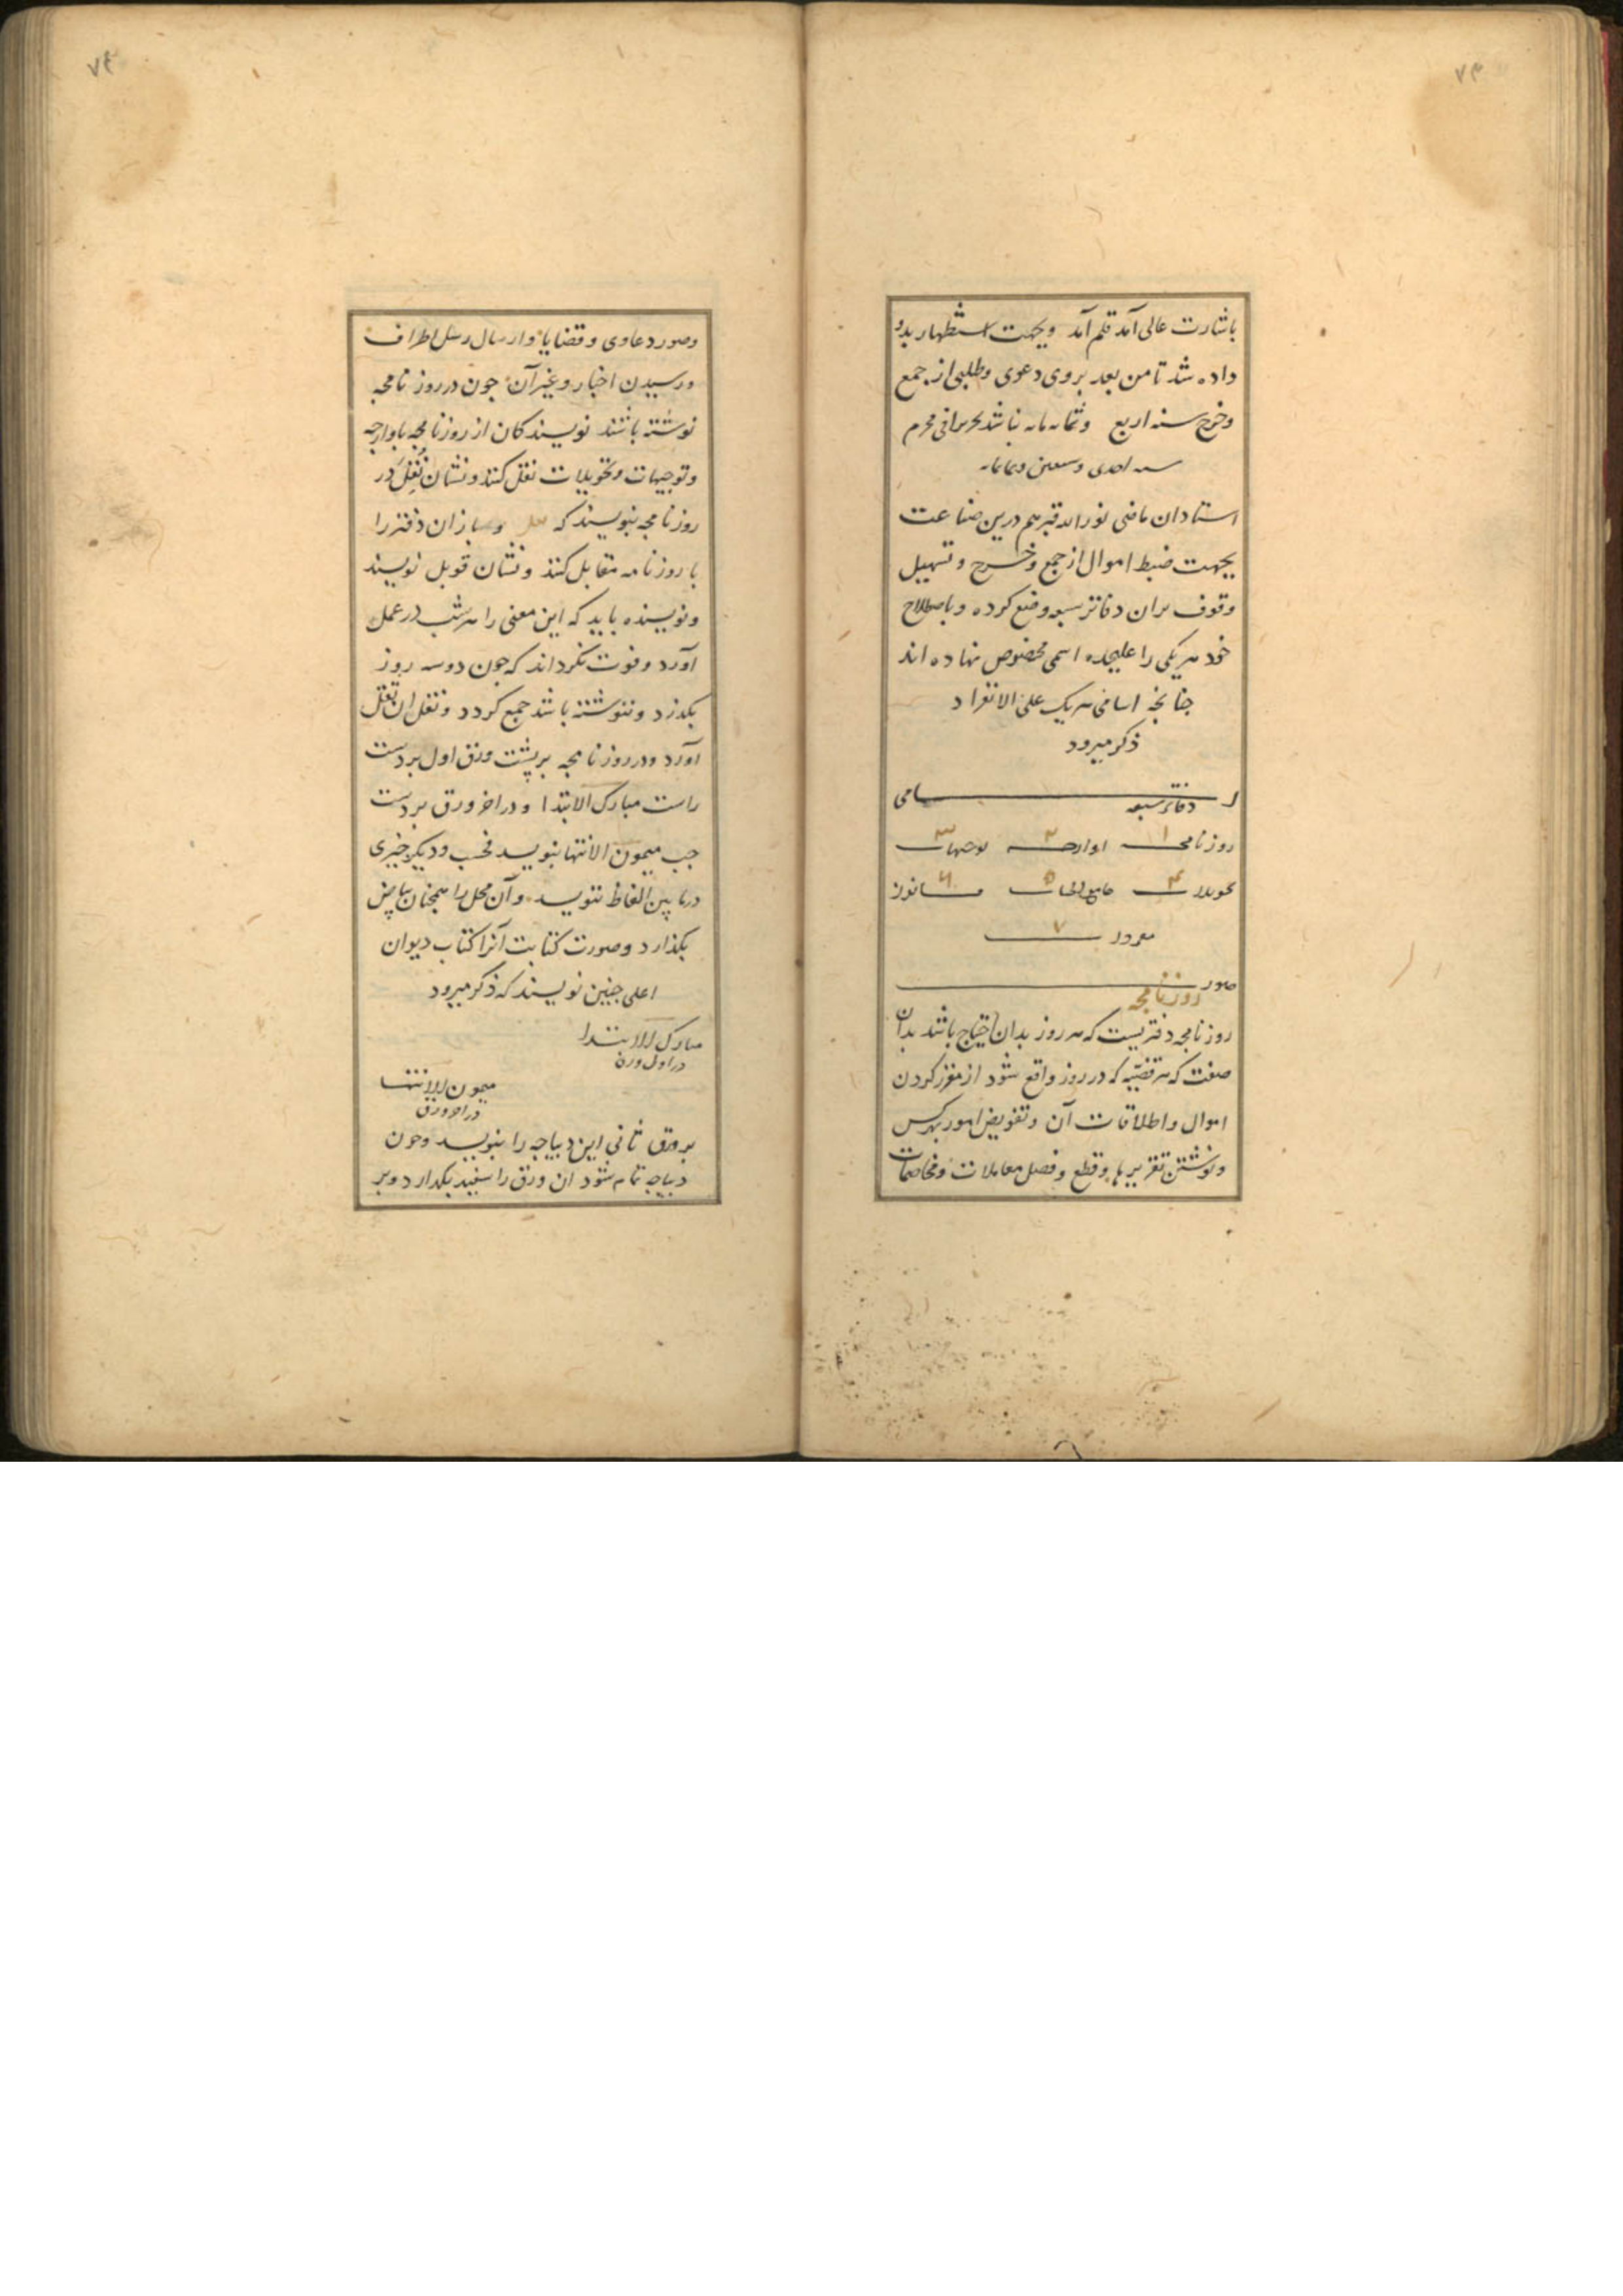 ۷۳
باشارت عالی آمد قلم آمد وبجهت استظهار بدو
داده شد تا من بعد بروی دعوی وطلبی از جمع
وخرج سنه اربع وثمانمایه نباشد تحریرا فی محرم
سنه احدی وسبعین وثمانمایه
استادان ماضی نور الله قبرهم درین صناعت
بجهت ضبط اموال از جمع وخرج وتسهیل
وقوف بران دفاتر سبعه وضع کرده وباصطلاح
خود هر یکی را علیحده اسمی مخصوص نهاده اند
جنانجه اسامی هر یک علی الانفراد
ذکر میرود
اسامی
دفاتر سبعه
روزنامجه ۱ اوارجه ۲ توجیهات ۳
تحویلات ۴ جامع الحساب ۵ قانون ۶
مفردات ۷
صورت
روزنامجه
روزنامجه دفتریست که هر روز بدان احتیاج باشد بدان
صفت که هر قضیّه که در روز واقع شود از مقرر کردن
اموال واطلاقات آن وتفویض امور بهر کس
ونوشتن تقریرها وقطع وفصل معاملات ومخاصمات
۷۴
وصور دعاوی وقضایا وارسال رسل اطراف
ورسیدن اخبار وغیر آن جون در روزنامجه
نوشته باشند نویسندکان از روزنامجه باوارجه
وتوجیهات وتحویلات نقل کنند ونشان نُقِلَ در
روزنامجه بنویسند که نقل وبعد از ان دفتر را
با روزنامه مقابل کنند ونشان قوبل نویسند
ونویسنده باید که این معنی را هر شب در عمل
آورد وفوت نکرداند که جون دو سه روز
بکذرد وننوشته باشد جمع کردد ونقل ان بقل
آورد ودر روزنامجه بر پشت ورق اول بر دست
راست مبارک الابتدا ودر اخر ورق بر دست
جب میمون الانتها بنویسد فحسب ودیکر جیزی
درمابین الفاظ ننویسد وآن محل را همجنان بیاض
بکذارد وصورت کتابت آنرا کتاب دیوان
اعلی جنین نویسند که ذکر میرود
مبارک الابتدا
در اول ورق
میمون الانتها
در اخر ورق
بر ورق ثانی این دیباجه را بنویسد وجون
دیباجه تمام شود ان ورق را سفید بکذارد وبر